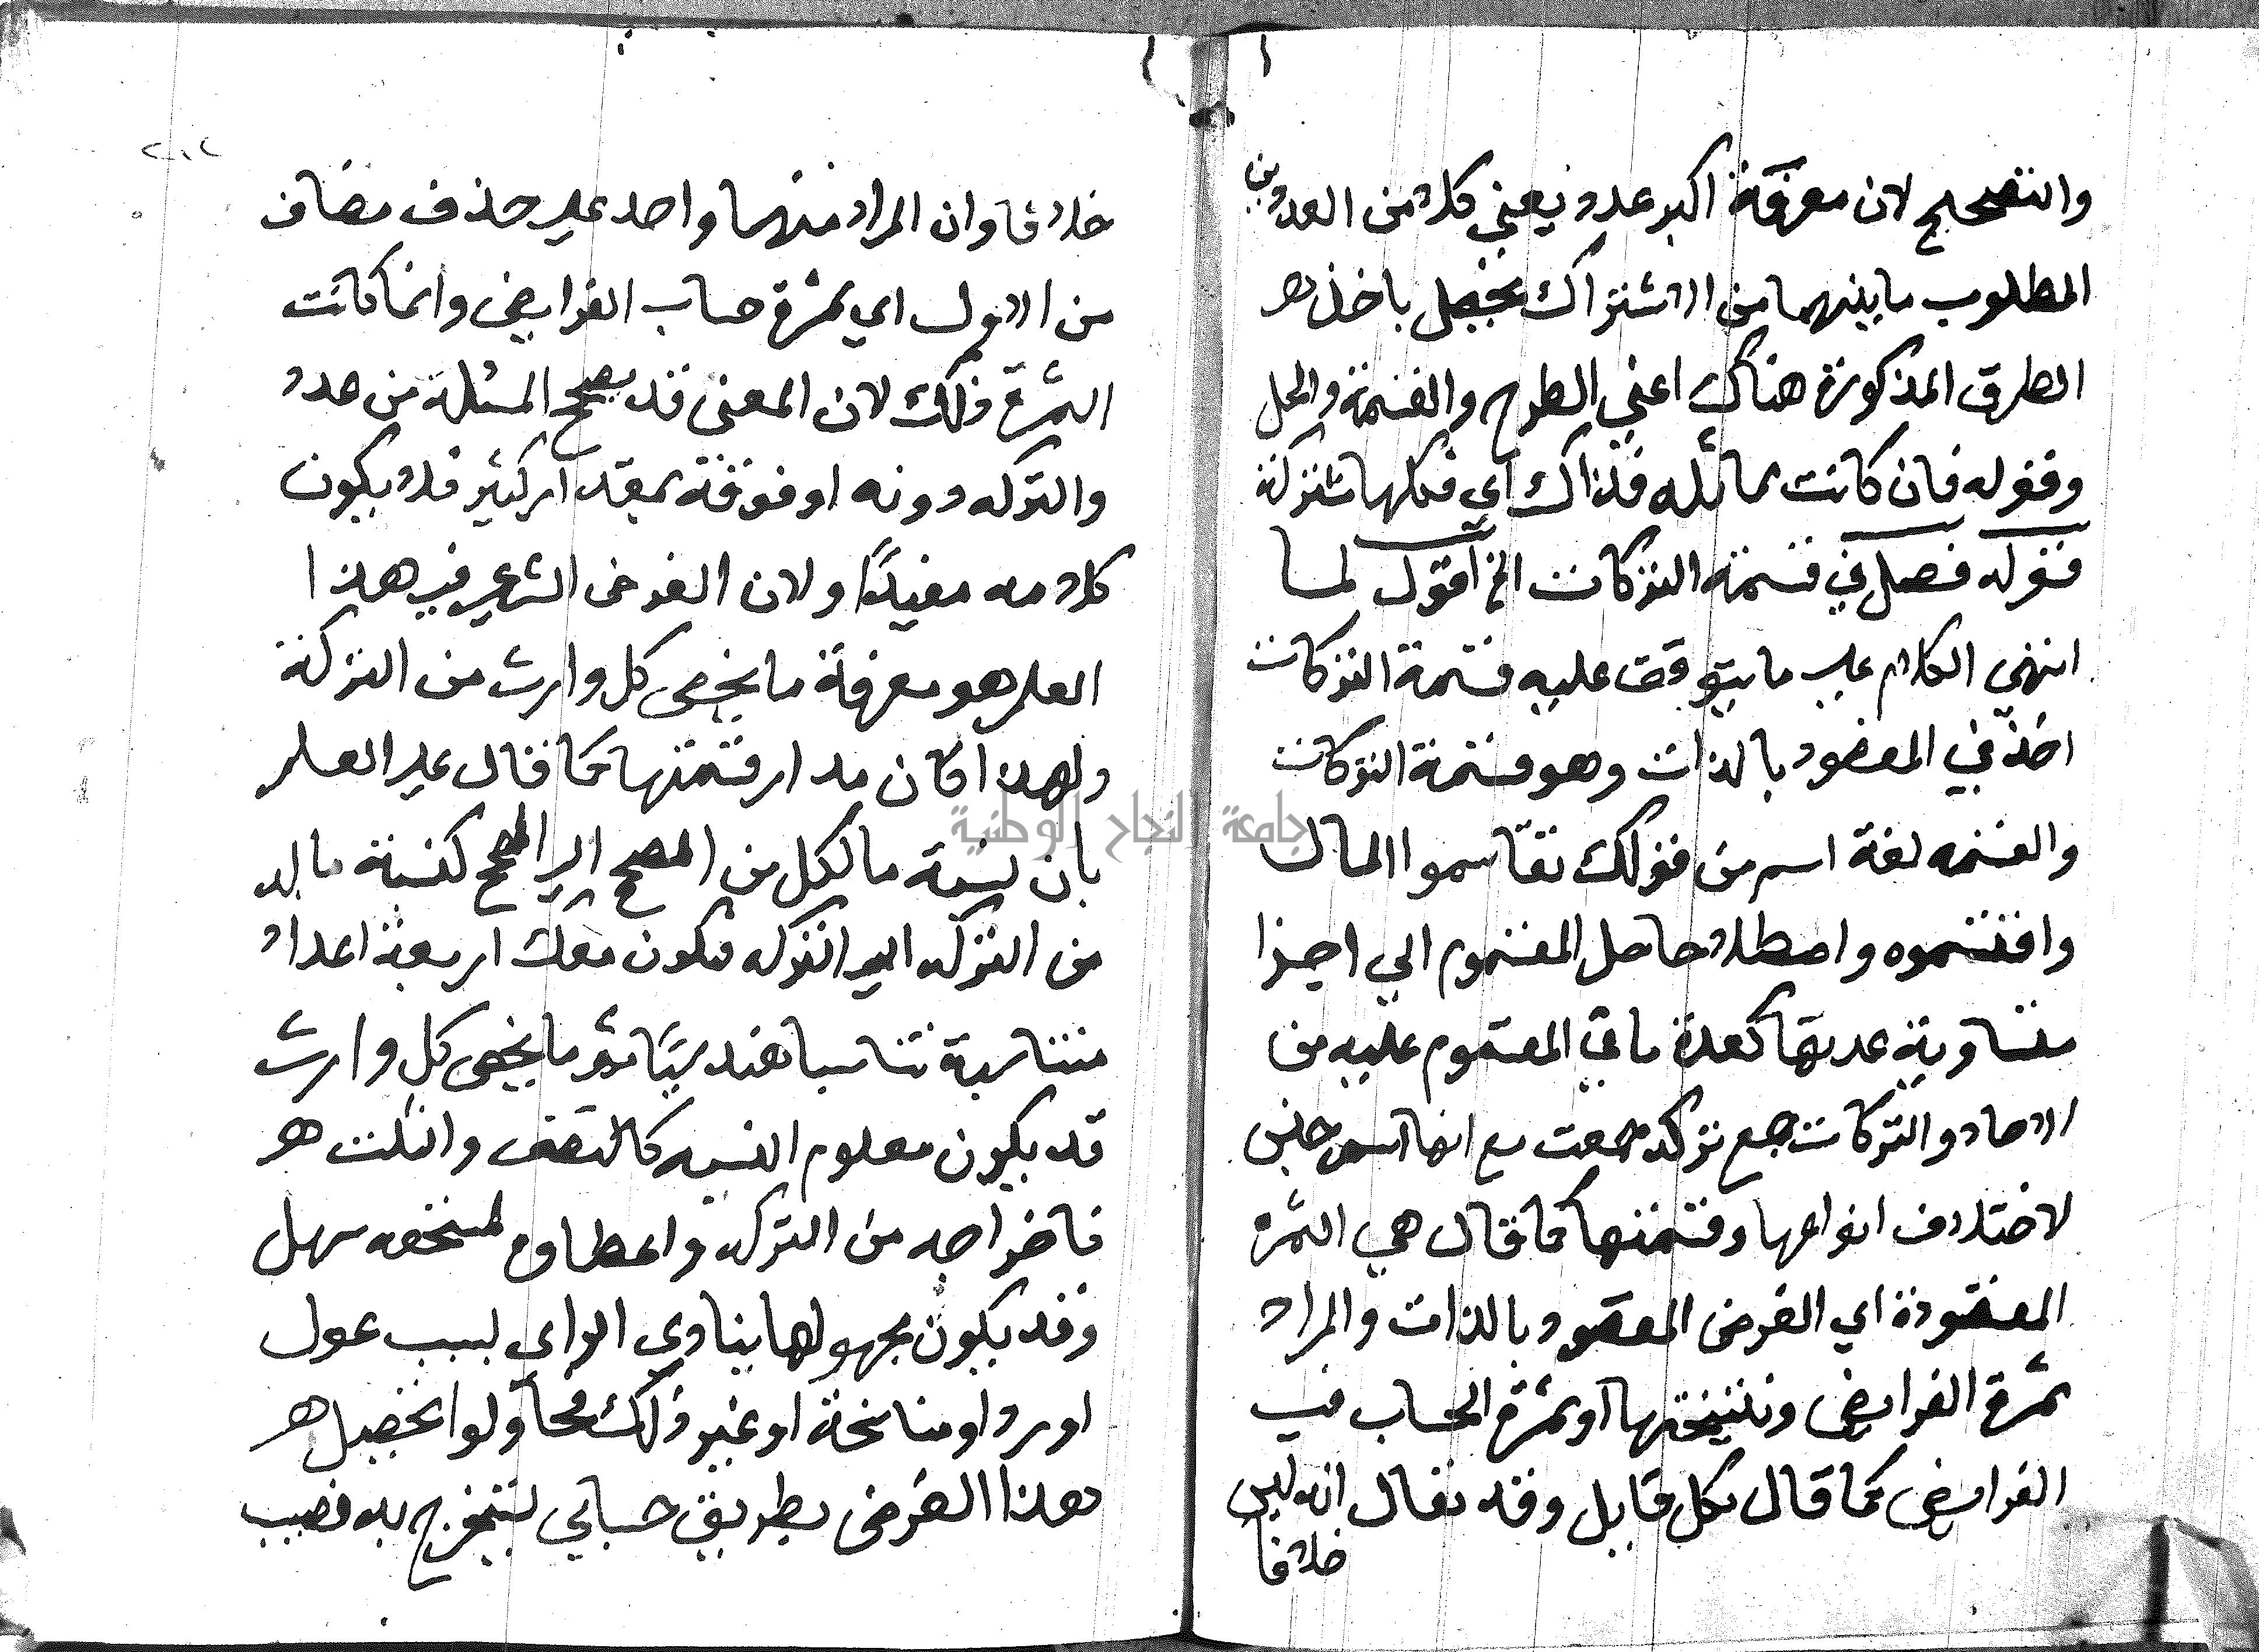 والتصحيح لان معرفة اكبر عدد يعني كلا من العددين
المطلوب ما بينهما من الاشتراك يحصل باخذ هـ
الطرق المذكورة هناك اعني الطرح والقسمة والحل
وقوله فان كانت مماثله فذاك اي فكلها مشتركة
قوله فصل في قسمة التركات الخ اقول لما
انتهي الكلام علي ما يتوقف عليه قسمة التركات
اخذ في المقصود بالذات وهو قسمة التركات
والقسمه لغة اسم من قولك تقاسموا المال
واقتسموه واصطلاحا حل المقسوم الي اجزا
متساوية عدتها كعدة ما في المقسوم عليه من
الاحاد والتركات جمع تركه جمعت مع انها اسم جنس
لاختلاف انواعها وقسمتها كما قال هي الثمرة
المقصودة اي الغرض المقصود بالذات والمراد
ثمرة الفرايض ونتيجتها او ثمرة الحساب في
الفرايض كما قال بكل قايل وقد يقال انه ليس
خلافا
٢٠٢
خلافا وان المراد منهما واحد علي حذف مضاف
من الاول اي ثمرة حساب الفرايض وانما كانت
الثمرة ذلك لان المعني قد يصح المسئلة من عدد
والتركه دونه او فوقه بمقدار كثير فلا يكون
كلامه مفيدا ولان الغرض الشرعي في هذا
العلم هو معرفة ما يخص كل وارث من التركة
ولهذا كان مدار قسمتها كما قال علي العلم
بان نسبة ما لكل من المصحح الي المصحح كنسبة ماله
من التركه الي التركه فيكون معك اربعة اعداد
متناسبة تناسبا هندسيا ثم ما يخص كل وارث
قد يكون معلوم النسبه كالنصف والثلث هـ
فاخراجه من التركه واعطاوه لمستحقه سهل
وقد يكون مجهولها ببادي الراي لسبب عول
او رد او مناسخة او غير ذلك فحاولوا تحصيل هـ
هذا الغرض بطريق حسابي يستخرج به نصيب
جامعة النجاح الوطنية